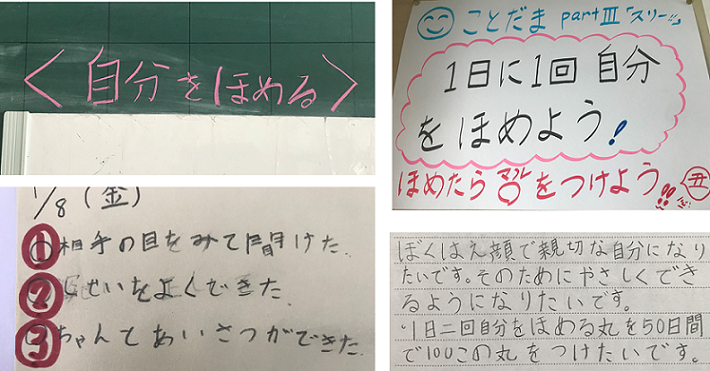 ＜自分をほめる＞
ことだま partⅢ「スリー!!」
1日に1回 自分
をほめよう!
ほめたら をつけよう
丑
1/8（金）
①相手の目をみて聞けた.
②しせいをよくできた.
③ちゃんとあいさつができた.
ぼくはえ顔で親切な自分になり
たいです。そのためにやさしくでき
るようになりたいです。
1日二回自分をほめる丸を50日間
で100この丸をつけたいです。